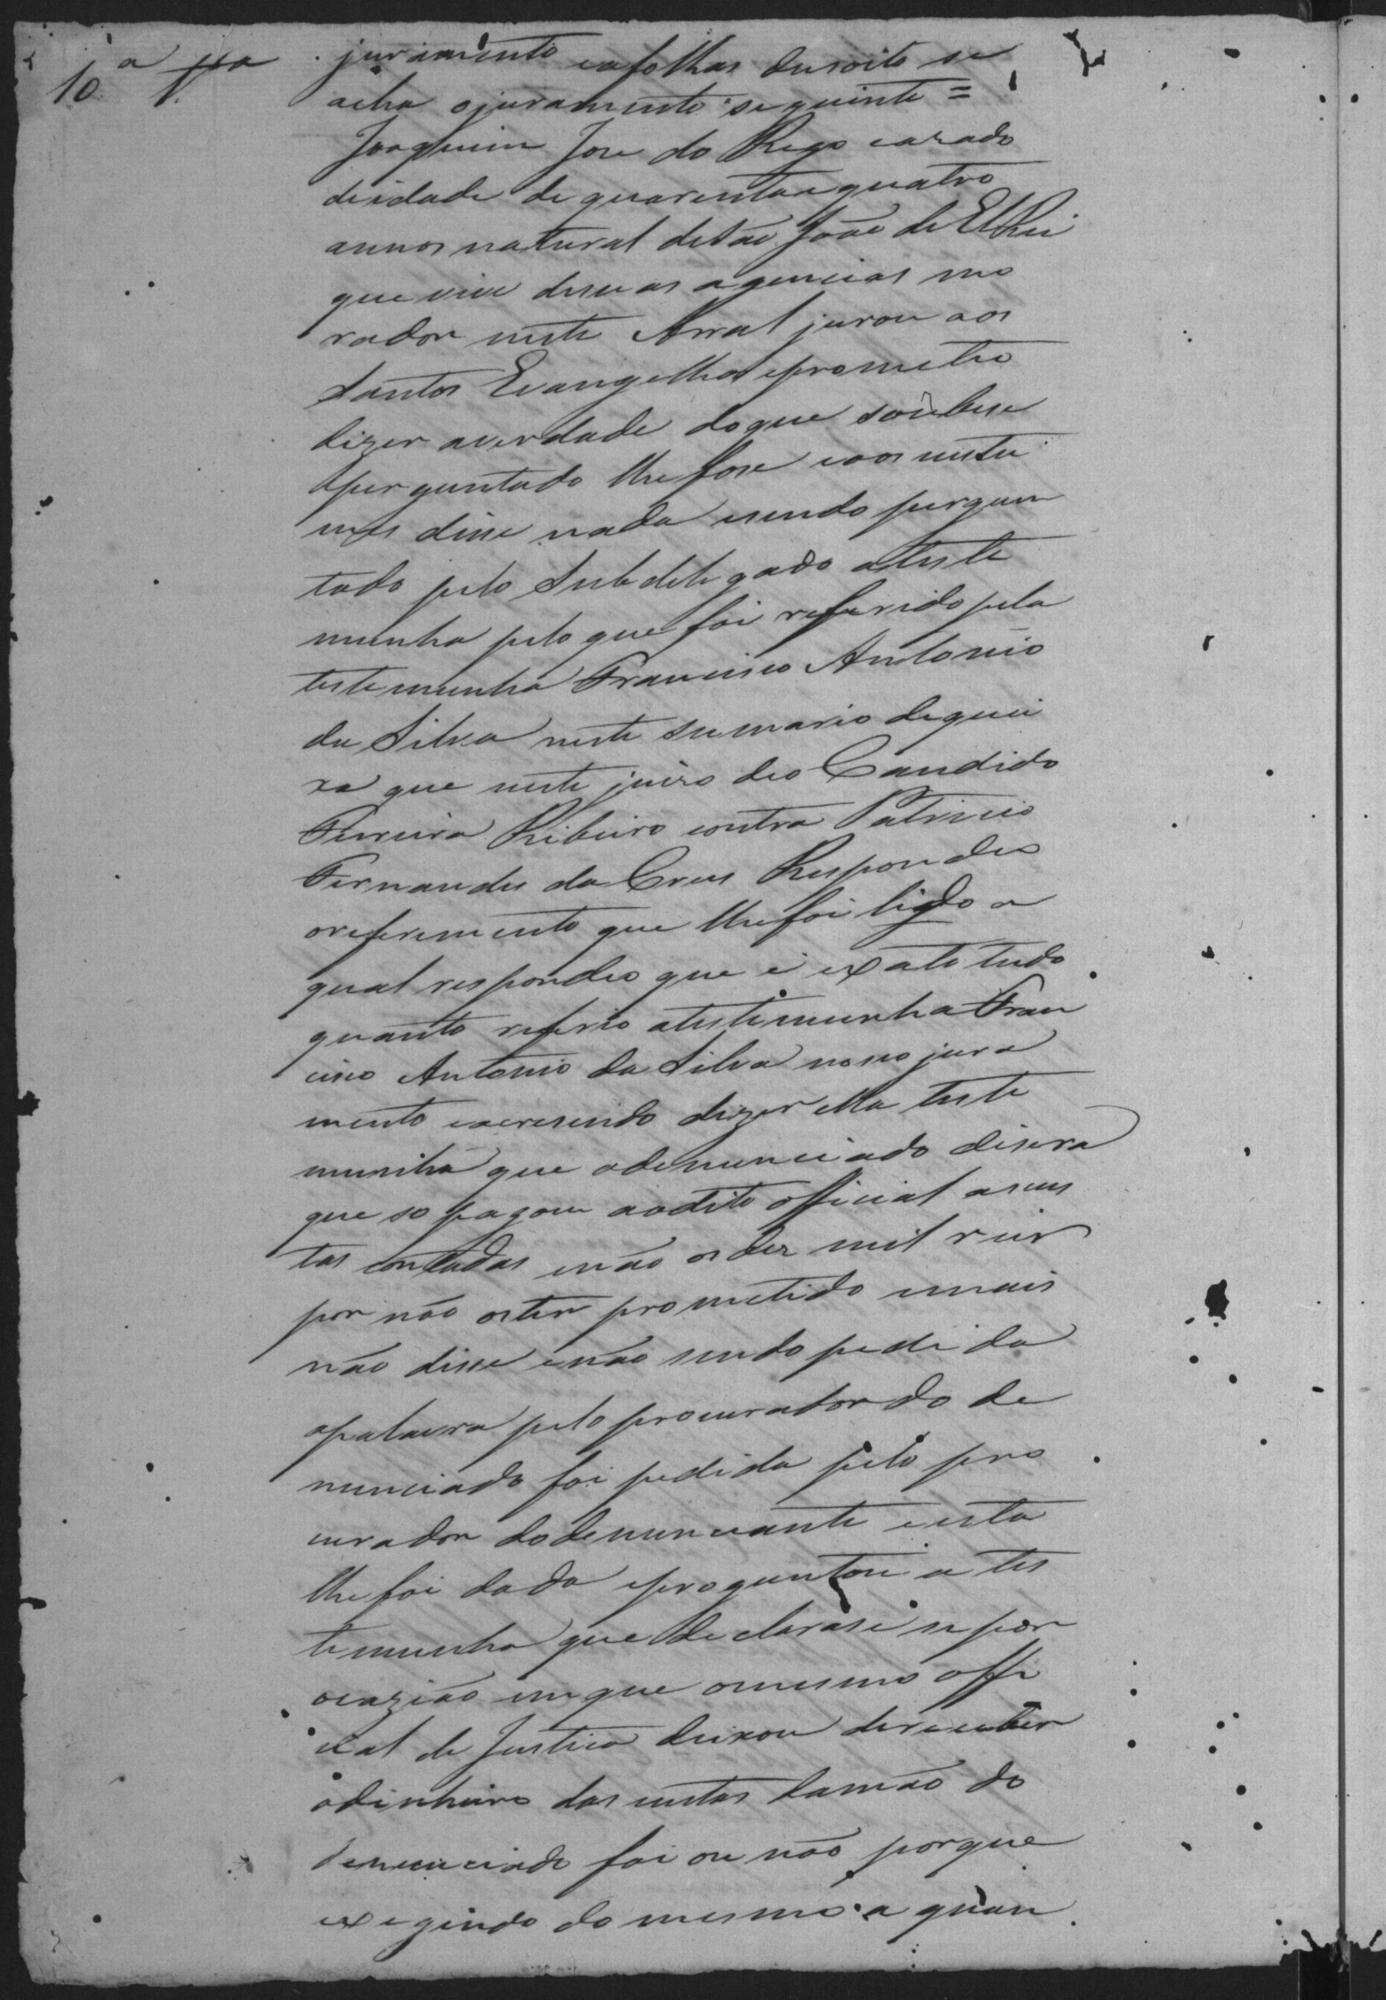 10ª
juramento eafolhas desoito se
acha ojuramento seguinte =
Joaquim Jose do Rego cazado
deidade de quarentaequatro
annos natural deSão João de ElRei
que vive desuas agencias mo
rador neste Arral jurou aos
Santos Evangelhos eprometeo
dizer averdade doque soubese
eperguntado lhe fose eaos custu
mes disse nada esendo pergun
tado pelo Subdelegado ateste
munha pelo que foi referido pela
testemunha Francisco Antonio
da Silva neste sumario dequei
xa que neste juizo deo Candido
Ferreira Ribeiro contra Patricio
Fernandes da Crus Respondeo
oreferemento que lhe foi lido a
qual respondeo que é exato tudo
quanto referio atestemunha Fran
cisco Antonio da Silva noseo jura
mento eacresendo dizer ella teste
munha que odenunciado disera
que so pagou aodito official as cus
tas contadas enão os des mil reis
por não oster prometido emais
não disse enão sendo pedida
apalavra pelo procurador do de
nunciado foi pedida pelo pro
curador dodenunciante eesta
lhe foi dada eproguntou a tes
temunha que declarase se por
ocazião emque omesmo offi
cial de Justica deixou dereceber
odinheiro das custas damão do
denunciado foi ou não porque
exegindo do mesmo a quan